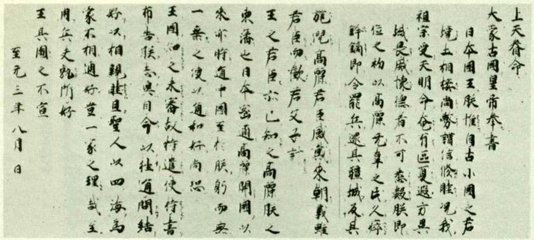 上天眷命
大蒙古國皇帝奉書
日本國王朕惟自古小國之君
境土相接尚務講信修睦況我
祖宗受天明命奄有區夏遐方異
域畏威懷德者不可悉數朕即
位之初以高麗无辜之民久瘁
鋒鏑即令罷兵還其疆域反其
旄倪高麗君臣感戴來朝義雖
君臣而歡若父子計
王之君臣亦已知之高麗朕之
東藩也日本密邇高麗開國以
來亦時通中國至於朕躬而無
一乗之使以通和好尚恐
王國知之未審故特遣使持書
布告朕志冀自今以往通問結
好以相親睦且聖人以四海為
家不相通好豈一家之理哉至
用兵夫孰所好
王其圖之不宣
至元三年八月日